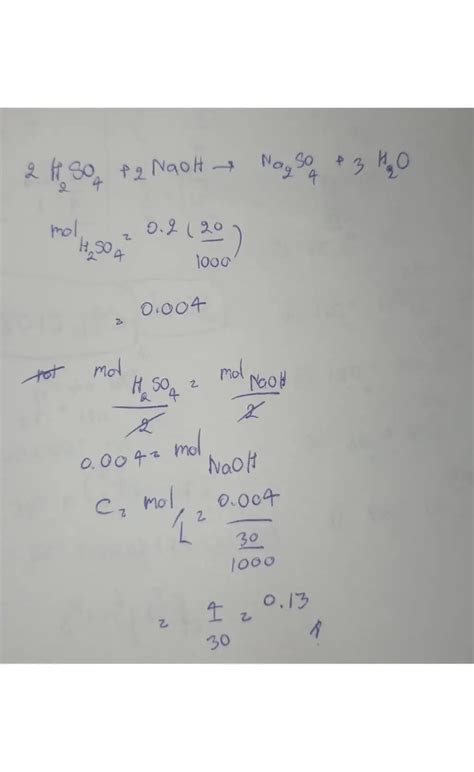 2 H₂SO₄ + 2 NaOH → Na₂SO₄ + 3 H₂O
mol H₂SO₄ = 0.2 (20/1000)
= 0.004
mol H₂SO₄/2 = mol NaOH/2
0.004 = mol NaOH
C = mol/L = 0.004/(30/1000)
= 4/30 = 0.13